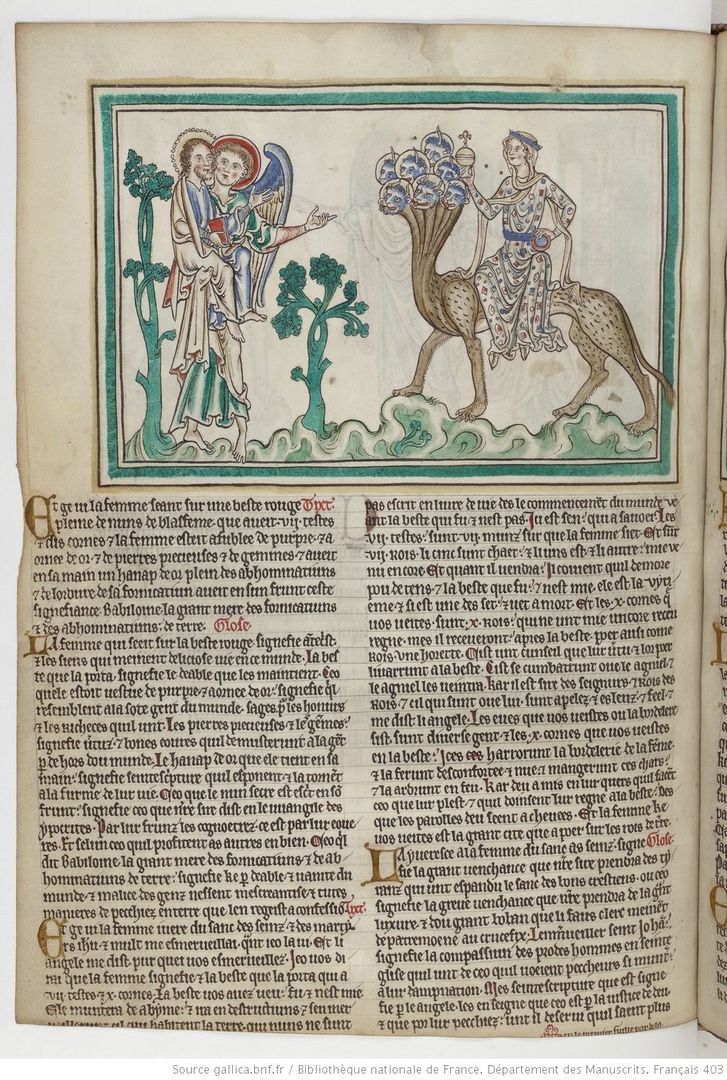 Et ge ui la femme seant sur une beste rouge Tixt.
pleine de nuns de blasfeme. que aueit .vij. testes
⁊ dis cornes ⁊ la femme esteit afublee de purpre. ⁊ a
ornee de or. ⁊ de pierres precieuses ⁊ de gemmes. ⁊ aueit
en sa main un hanap de or plein des abhominatiuns
⁊ de lordure de sa fornicatiun aueit en sun frunt ceste
signefiance. Babiloine la grant mere des fornicatiuns
⁊ des abhominatiuns de terre. Glose.
La femme qui seit sur la beste rouge signefie
⁊ les siens qui meinent deliciose uie en ce munde. La bes
te que la porta. signefie le deable que les maintient. Ceo
quele estoit uestue de purpre ⁊ aornee de or. signefie
resemblent a la sote gent du munde. sages. les honurs
⁊ les richeces quil unt. Les pierres precieuses ⁊ le gemes.
signefie ⁊ bones oures quil demustrunt a la
de hors du munde. Le hanap de or que ele tient en sa
main. signefie seinte scripture quil esponent ⁊ la
a la furme de lur uie. Oeo que le nun secre est escrit en sō
frunt. signefie ceo que nre sire dist en le uuangile des
ypocrites. Par lur fruiz les cognoetrez. ce est par lur oue
res. Et selun ceo quil profitent as autres en bien. Oeo qil
dit Babiloine la grant mere des fornicatiuns ⁊ de ab
hominatiuns de terre. signefie ke deable ⁊ uanite du
munde ⁊ malice des genz nessent mescreantise ⁊ tutes
manieres de pechiez en terre que len regeist a confessiō Tixt.
Et ge ui la femme iuere du sanc des seinz ⁊ des
ers ihu. ⁊ mult me esmerueillai. qnt ieo la ui. Et li
angele me dist pur quei uos esmerueillez. Jeo uos di
rai que la femme signefie ⁊ la beste que la porta qui a
.vij. testes ⁊ .x. cornes. La beste uos auez ueu. fu. ⁊ nest mie
⁊ le muntera de abyme. ⁊ ira en destructiuns. ⁊ sen mer
⁊ cil qui habitent la terre. qui nuns ne sunt
pas escrit en liure de uie des le commencemēt du munde.
ant la beste qui fu ⁊ nest pas. Ju est sen. qui a sauoir. Les
.vij. testes. sunt .vij. munz sur que la femme siet. Et sūt
.vij. rois. li cinc sunt chaet. ⁊ li uns est. ⁊ li autre. mie ve
nu encore. Et quant il uiendra. il couient quil demore
pou de tens. ⁊ la beste que fu. ⁊ nest mie. ele est la
eme. ⁊ si est une des set. ⁊ uet a mort. Et les .x. cornes q̄
uos ueites. sunt .x. rois. qui ne unt mie uncore receu
regne. mes il receuerunt apres la beste. poer ausi come
rois. vne horette. Cist unt cunseil que lur ⁊ lor poer
liuerrunt a la beste. Cist se cumbatrunt oue le agniel. ⁊
le agniel les ueintra. Kar il est sire des seigniurs ⁊ rois des
rois. ⁊ cil qui sunt oue lui. sunt apelez. ⁊ eslenz ⁊ feel. ⁊
me dist li angele. Les eues que uos ueistes ou la bordelere
sist. sunt diuerse gent ⁊ les .x. cornes que uos ueistes
en la beste. Jces harrorunt la bordelerie de la feme.
⁊ la ferunt desconfortee ⁊ nue. ⁊ mangerunt ces chars.
⁊ la ardrunt en feu. Kar deu a mis en lur quers quil facēt
ceo que lur plest. ⁊ quil doinsent lur regne a la beste. des
que les paroles deu seent acheuees. Et la femme ke
uos ueites est la grant cite que a poer sur les rois de tre.
La yueresce a la femme du sanc as seinz. signe Glose.
fie la grant uenchance que nre sire prendra des
ranz qui unt espandu le sanc des bons crestiens. ou ceo
signefie la greue uenchance que nre prendra de la gent
luxure. ⁊ dou grant boban que li faus clerc meinēt
de patremoene au crucefix. Lemerueiller seint Johā.
signefie la compassiun des prodes hommes en seinte
glise quil unt de ceo quil uoeient pecheurs si munt
a lur dampnatiun. Mes seinte scripture que est signe
fie le angele. les enseigne que ceo est la iustice de deu
⁊ que por lur pechiez. unt il deserui quil faient plus
Source gallica.bnf.fr / Bibliothèque nationale de France. Département des Manuscrits. Français 403